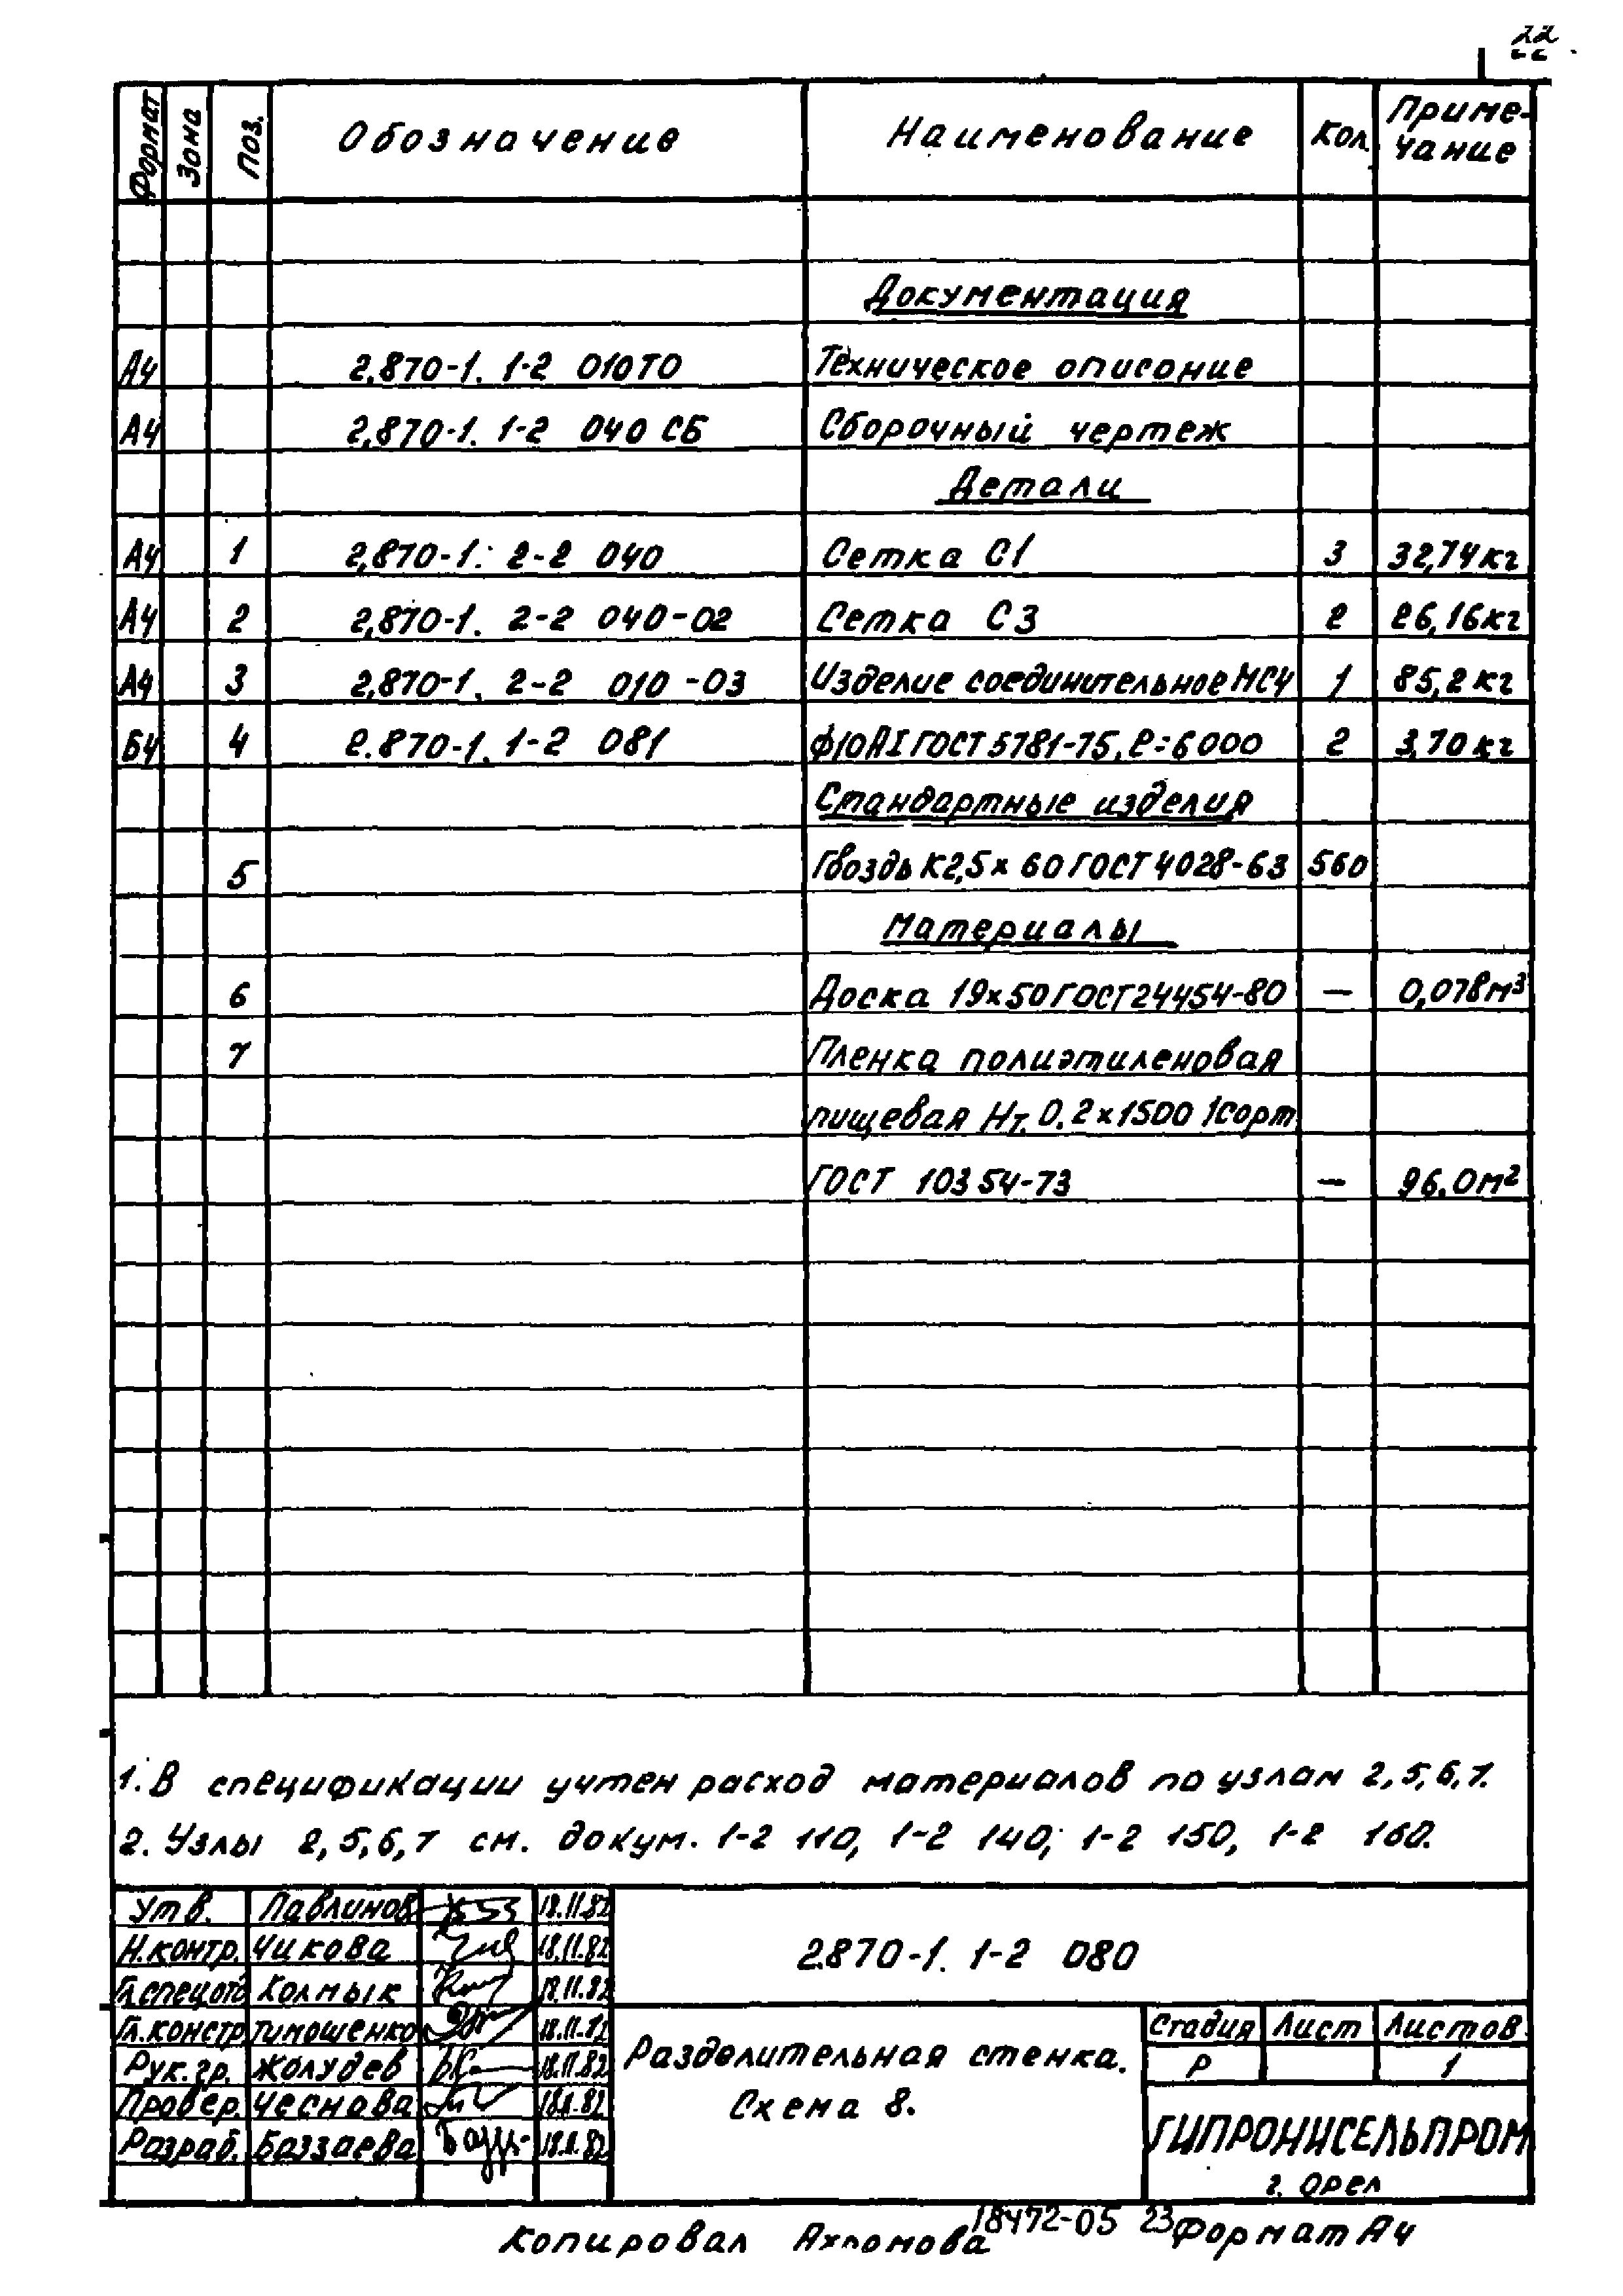 22
Формат Зона Поз. Обозначение Наименование Кол. Приме-
чание
Документация
А4 2.870-1. 1-2 010ТО Техническое описание
А4 2.870-1. 1-2 040 СБ Сборочный чертеж
Детали
А4 1 2.870-1. 2-2 040 Сетка С1 3 32,74кг
А4 2 2.870-1. 2-2 040-02 Сетка С3 2 26,16кг
А4 3 2.870-1. 2-2 010-03 Изделие соединительное МС4 1 85,2кг
БЧ 4 2.870-1. 1-2 081 ф10АI ГОСТ 5781-75, ℓ=6000 2 3,70кг
Стандартные изделия
5 Гвоздь К2,5×60 ГОСТ 4028-63 560
Материалы
6 Доска 19×50 ГОСТ 24454-80 — 0,078м³
7 Пленка полиэтиленовая
пищевая Нт. 0.2×1500 1сорт
ГОСТ 10354-73 — 96.0м²
1. В спецификации учтен расход материалов по узлам 2,5,6,7.
2. Узлы 2,5,6,7 см. докум. 1-2 110, 1-2 140; 1-2 150, 1-2 160.
Утв. Павлинов 18.11.82
Н.контр. Чикова 18.11.82
Гл.спецотд Колмык 18.11.82
Гл.констр Тимошенко 18.11.82
Рук.гр. Жолудев 18.11.82
Провер. Чеснова 18.11.82
Разраб. Баззаева 18.11.82
2.870-1. 1-2 080
Разделительная стенка.
Схема 8.
Стадия Лист Листов
Р 1
ГИПРОНИСЕЛЬПРОМ
г. Орел
18472-05 23
Копировал Формат А4